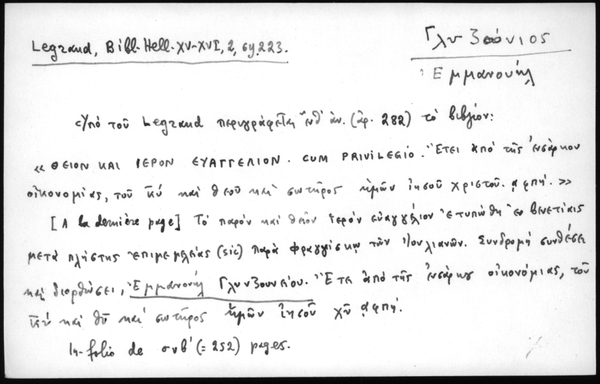 Legrand, Bibl. Hell. XV-XVI, 2, σχ. 223.
Γλυζούνιος
Ἐμμανουήλ
Ὑπό τοῦ Legrand περιγράφεται ὑπ' ἀν. (ἀρ. 282) τό βιβλίον:
« ΘΕΙΟΝ ΚΑΙ ΙΕΡΟΝ ΕΥΑΓΓΕΛΙΟΝ. CUM PRIVILEGIO. Ἔτει ἀπό τῆς ἐνσάρκου
οἰκονομίας, τοῦ κῦ καί θεοῦ καί σωτῆρος ἡμῶν ἰησοῦ χριστοῦ. αφπή. »
[A la dernière page] Τό παρόν καί θεῖον ἱερόν εὐαγγέλιον ἐτυπώθη ἐν βενετίαις
μετά πλήστης ἐπιμελείας (sic) παρά φραγγίσκῳ τῶν Ἰουλιανῶν. Συνδρομῇ συνθέσει
καί διορθώσει, Ἐμμανουήλ Γλυνζουνείου. Ἔτει ἀπό τῆς ἐνσάρκου οἰκονομίας, τοῦ
κῦ καί θῦ καί σωτῆρος ἡμῶν ἰησοῦ χῦ αφπή.
In-folio de σνβ' (= 252) pages.